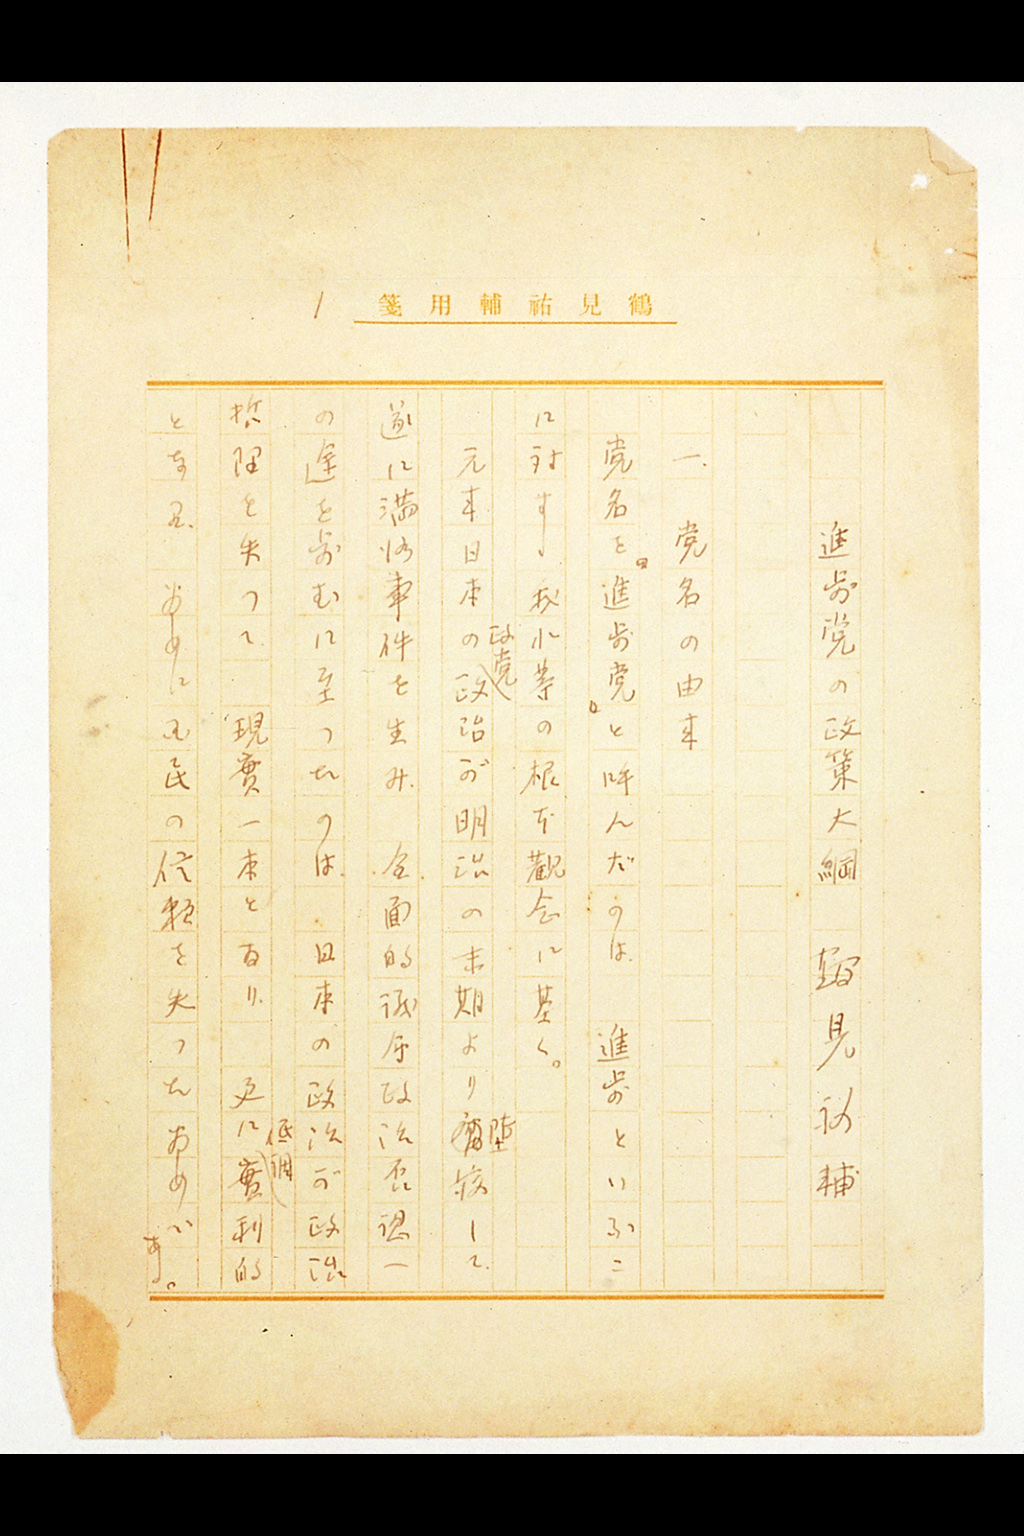 鶴見祐輔用箋
1
進歩党の政策大綱 鶴見祐輔
一、党名の由来
党名を進歩党と呼んだのは、進歩といふこ
に対する我れ等の根本観念に基く。
元来日本の政党政治が明治の末期より堕落して、
遂に満洲事件を生み、全面的議会政治否認
の途を歩むに至つたのは、日本の政治が政治
哲理を失つて、現實一本となり、更に低調實利的
となり、ために国民の信頼を失つたためである。